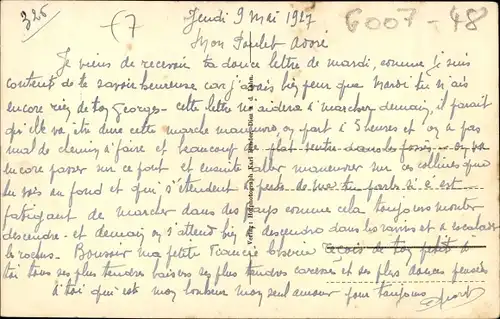 325
(7
6007-48
Jeudi 9 mai 1927
Mon Poulet Adoré
Je viens de recevoir ta douce lettre de mardi, comme je suis
content de te savoir heureuse car j'avais bien peur que Mardi tu n'ais
encore rien de ton Georges - cette lettre m'aidera à marcher demain, il parait
qu'elle va être dure cette marche manœuvre, on part à 5 heures et on a pas
mal de chemin à faire et beaucoup de plat dans les on va
encore passer sur ce pont et ensuite aller manœuvrer sur ces collines que
tu vois au fond et qui s'étendent à perte de vue tu parles si c'est
fatigant de marcher dans des pays comme cela toujours monter
descendre - et demain on s'attend bien descendre dans les ravins et à escalader
les rochers. Bonsoir ma petite Fiancée Chérie reçois de ton petit à
toi tous ses plus tendres baisers ses plus tendres caresses et ses plus douces pensées
à toi qui est mon bonheur mon seul amour pour toujours